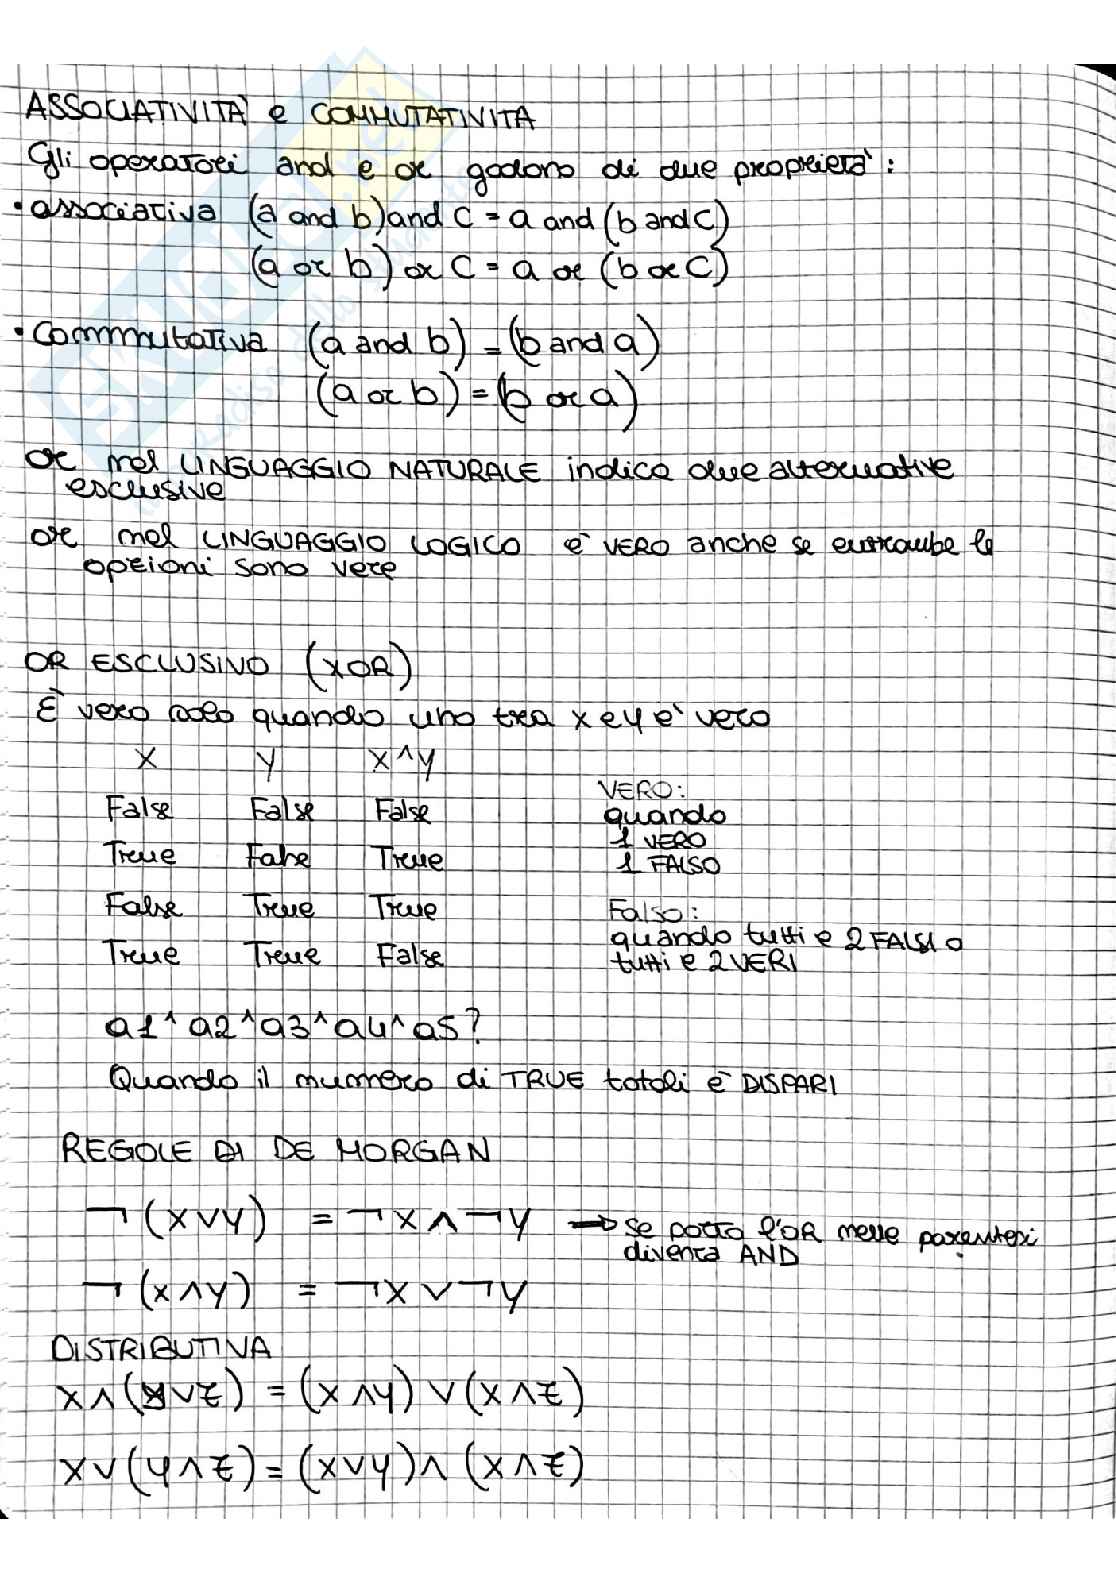 ASSOCIATIVITÀ e COMMUTATIVITÀ
Gli operatori and e or godono di due proprietà:
• associativa (a and b) and C = a and (b and C)
(a or b) or C = a or (b or C)
• commutativa (a and b) = (b and a)
(a or b) = (b or a)
or nel LINGUAGGIO NATURALE indica due alternative
esclusive
or nel LINGUAGGIO LOGICO è VERO anche se entrambe le
opzioni sono vere
OR ESCLUSIVO (XOR)
È vero solo quando uno tra x e y è vero
X Y X^Y
False False False
True False True
False True True
True True False
VERO:
quando
1 VERO
1 FALSO
Falso:
quando tutti e 2 FALSI o
tutti e 2 VERI
a1^a2^a3^a4^a5?
Quando il numero di TRUE totali è DISPARI
REGOLE DI DE MORGAN
¬(X∨Y) = ¬X∧¬Y → se porto l'OR nelle parentesi
diventa AND
¬(X∧Y) = ¬X∨¬Y
DISTRIBUTIVA
X∧(Y∨Z) = (X∧Y)∨(X∧Z)
X∨(Y∧Z) = (X∨Y)∧(X∧Z)